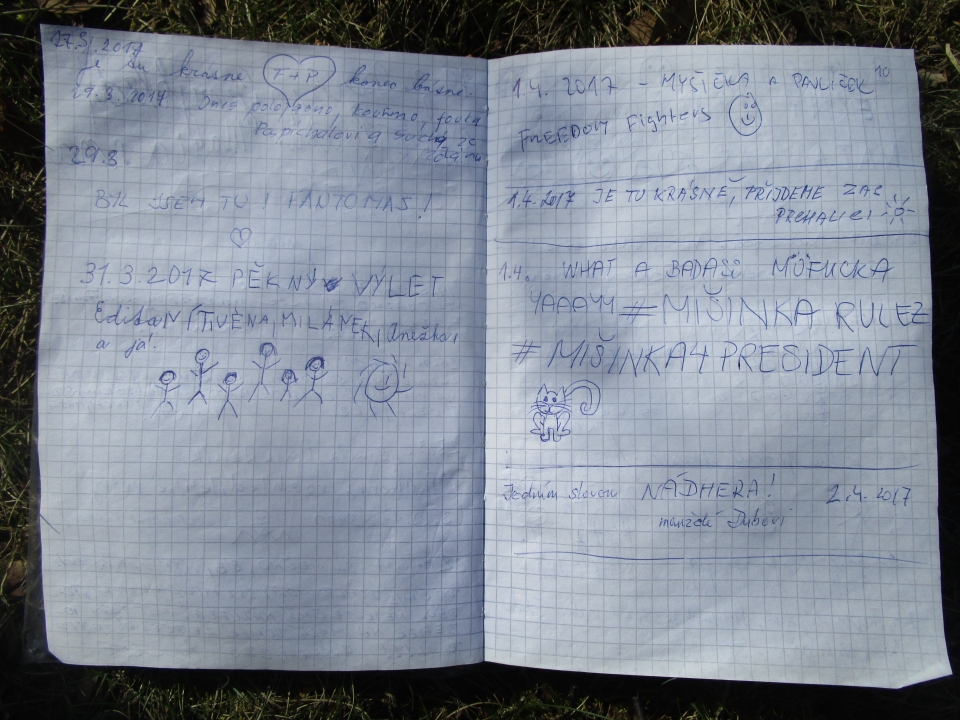 27.3.2017
je tu krásně F+P konec básně.
29.3.2017 Dnes
a
29.3.
BYL JSEM TU! FANTOMAS!
31.3.2017 PĚKNÝ VÝLET
MILÁNEK, Anežka
a já!
10
1.4. 2017 - MYŠIČKA A PAVLÍČEK
FREEDOM Fighters
1.4.2017 JE TU KRÁSNĚ, PŘIJDEME ZAS
1.4. WHAT A BADASS MOFUCKA
YAAAYY #MIŠINKA RULEZ
# MIŠINKA4PRESIDENT
Jedním slovem NÁDHERA! 2.4.2017
manželé Dubovi